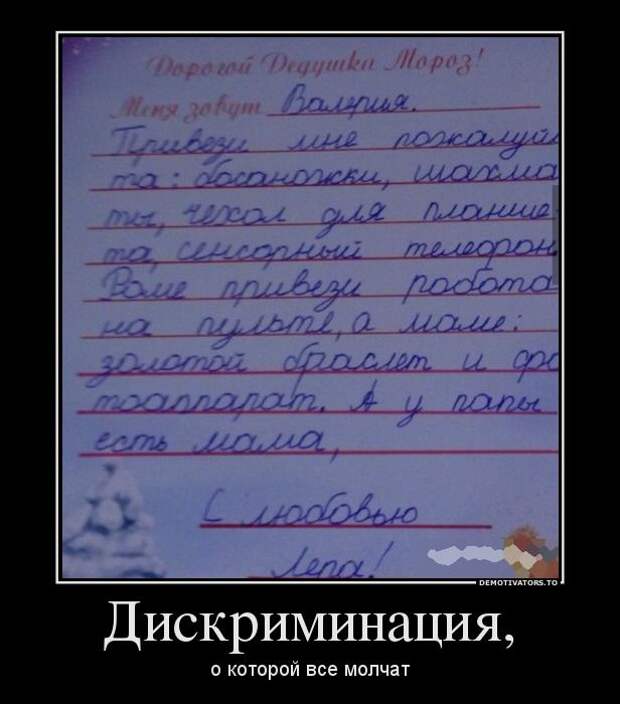 Дорогой Дедушка Мороз!
Меня зовут Валерия.
Привези мне пожалуйс
та: босаножки, шахма
ты, чехол для планше
та, сенсорный телефон
Роме привези робота
на пульте, а маме:
золотой браслет и фо
тоаппарат. А у папы
есть мама,
С любовью
Лера!
DEMOTIVATORS.TO
Дискриминация,
о которой все молчат